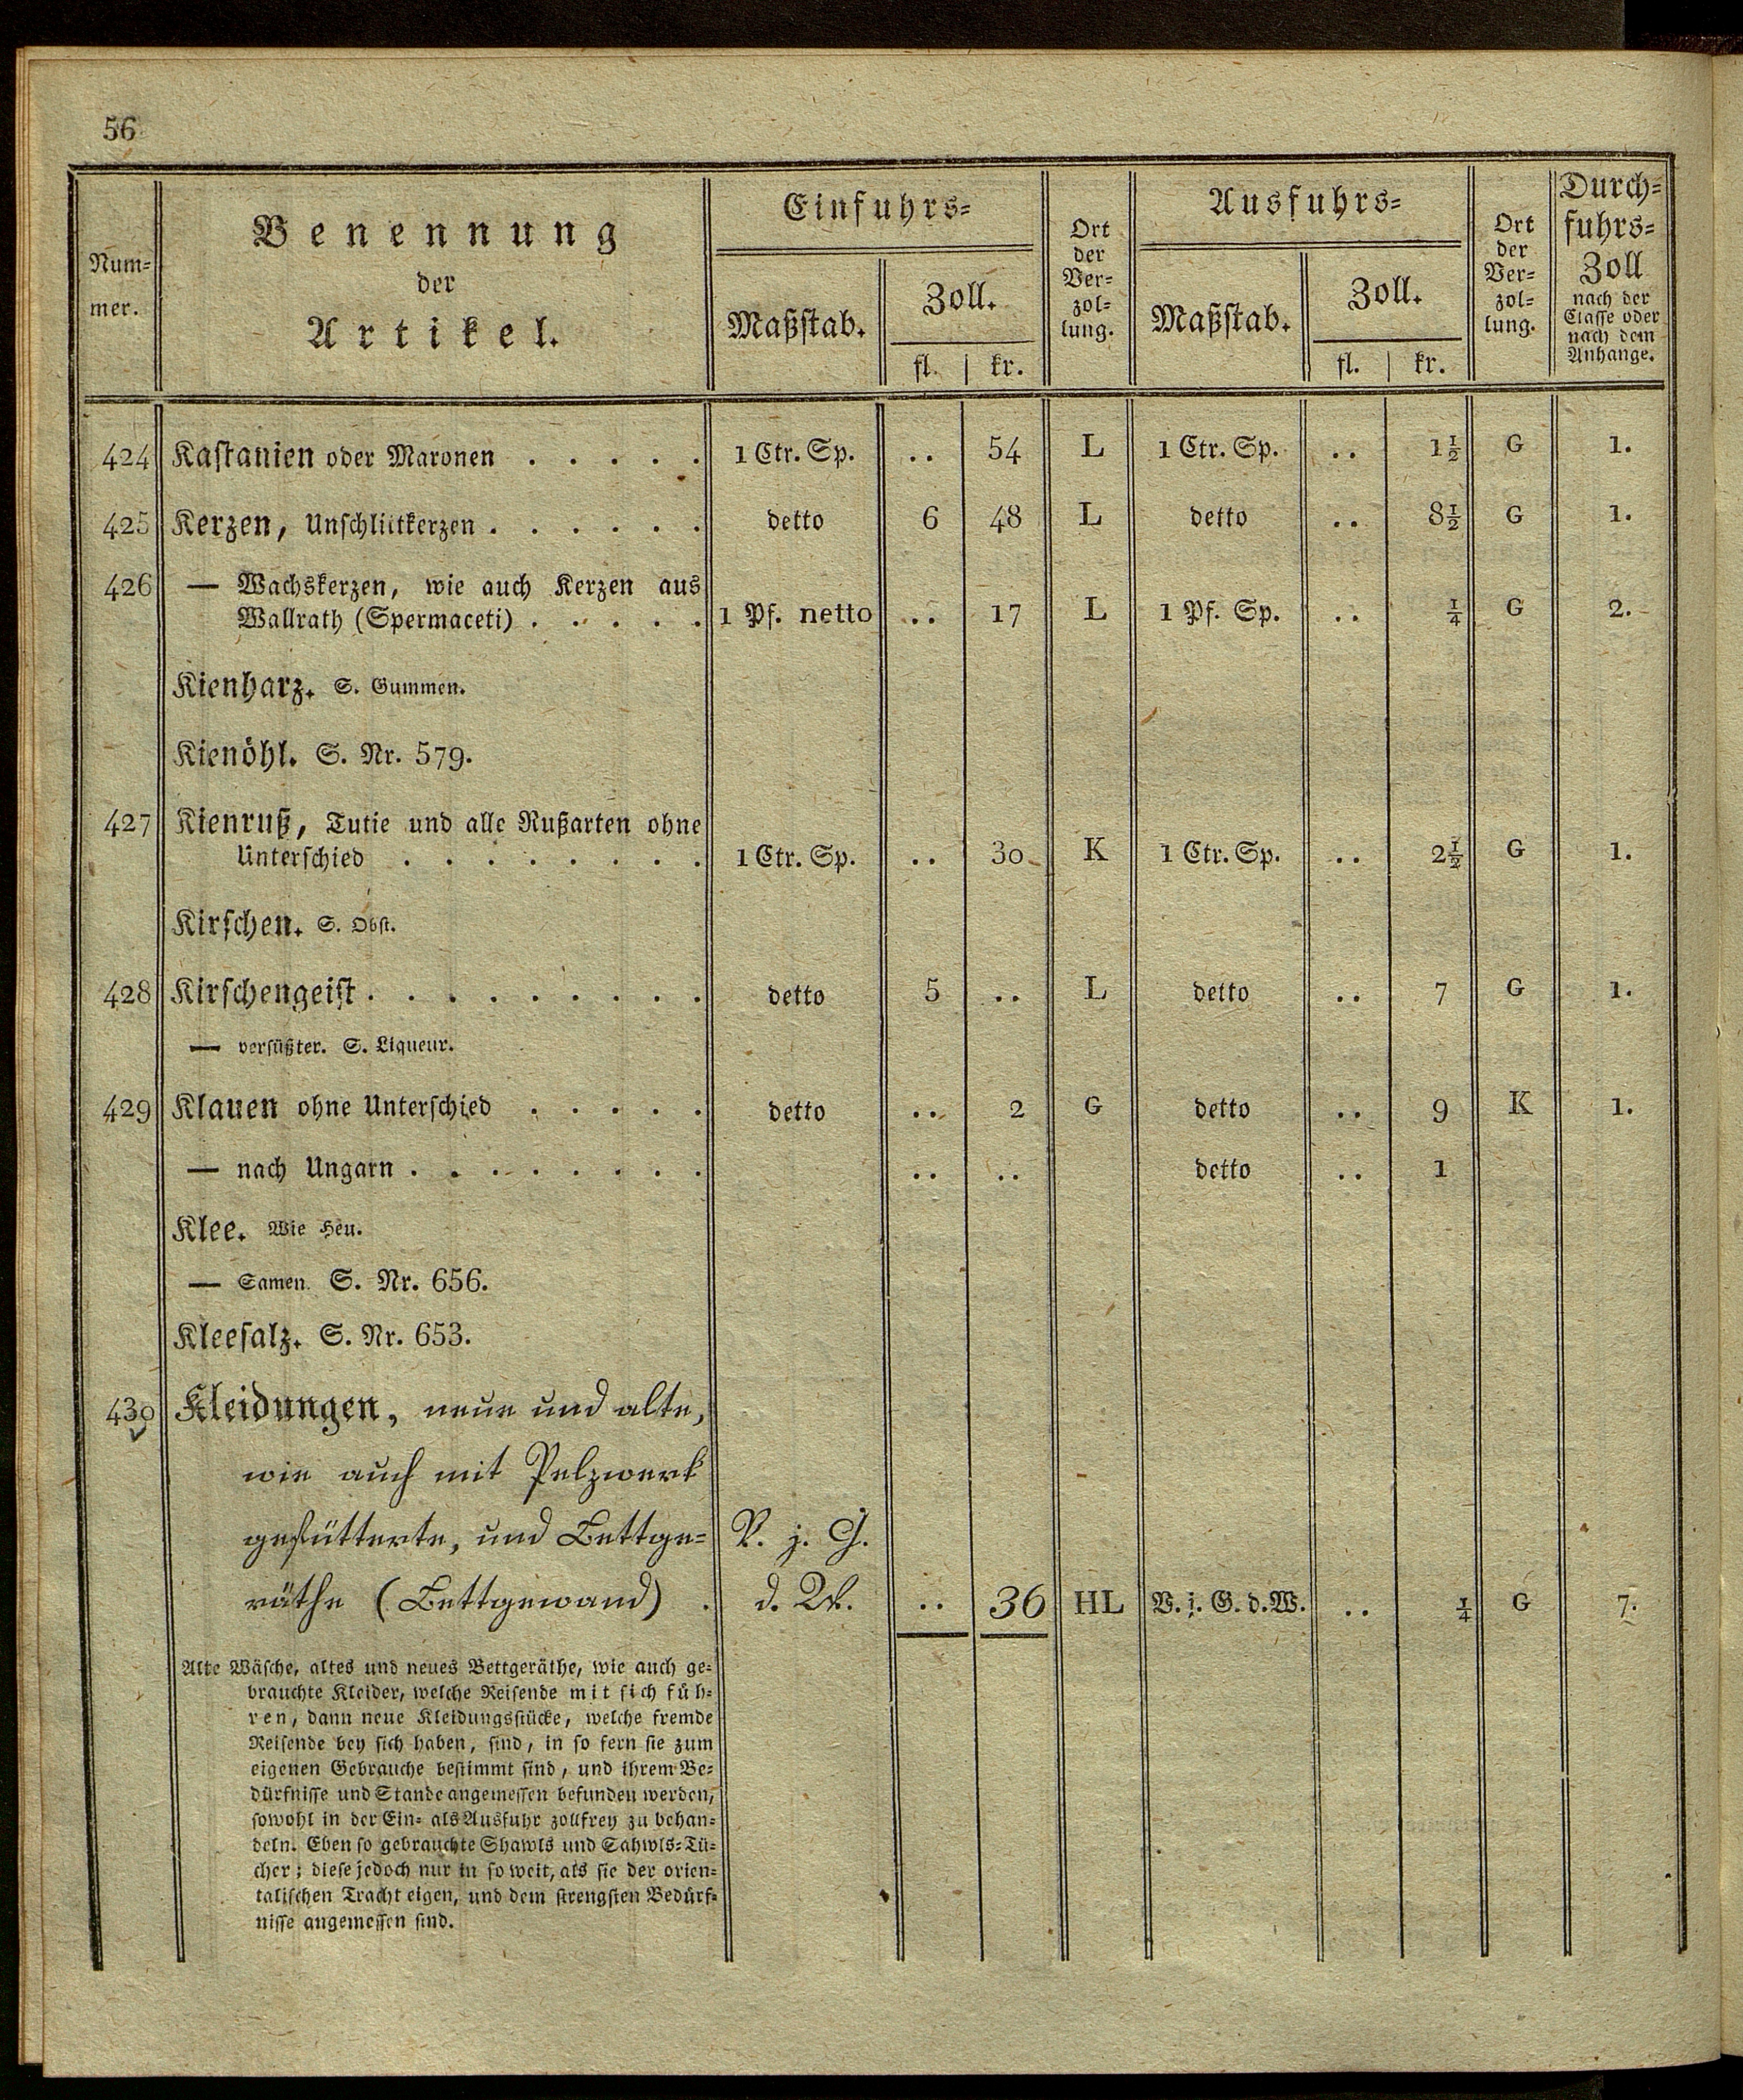 56
Num-
mer.
Benennung
der
Artikel.
Einfuhrs-
Maßstab.
Zoll.
fl. | kr.
Ort
der
Ver-
zol-
lung.
Ausfuhrs-
Maßstab.
Zoll.
fl. | kr.
Ort
der
Ver-
zol-
lung.
Durch-
fuhrs-
Zoll
nach der
Classe oder
nach dem
Anhange.
424 Kastanien oder Maronen . . . . . 1 Ctr. Sp. .. 54 L 1 Ctr. Sp. .. 1½ G 1.
425 Kerzen, Unschlittkerzen . . . . . . detto 6 48 L detto .. 8½ G 1.
426 — Wachskerzen, wie auch Kerzen aus
Wallrath (Spermaceti) . . . . . 1 Pf. netto .. 17 L 1 Pf. Sp. .. ¼ G 2.
Kienharz. S. Gummen.
Kienöhl. S. Nr. 579.
427 Kienruß, Tutie und alle Rußarten ohne
Unterschied . . . . . . . . 1 Ctr. Sp. .. 30 K 1 Ctr. Sp. .. 2½ G 1.
Kirschen. S. Obst.
428 Kirschengeist . . . . . . . . . detto 5 .. L detto .. 7 G 1.
— versüßter. S. Liqueur.
429 Klauen ohne Unterschied . . . . . detto .. 2 G detto .. 9 K 1.
— nach Ungarn . . . . . . . . .. .. detto .. 1
Klee. Wie Heu.
— Samen. S. Nr. 656.
Kleesalz. S. Nr. 653.
430 Kleidungen, neue und alte,
wie auch mit Pelzwerk
gefütterte, und Bettge- V. j. G.
räthe (Bettgewand) . d. W. .. 36 HL V. j. G. d. W. .. ¼ G 7.
Alte Wäsche, altes und neues Bettgeräthe, wie auch ge-
brauchte Kleider, welche Reisende mit sich füh-
ren, dann neue Kleidungsstücke, welche fremde
Reisende bey sich haben, sind, in so fern sie zum
eigenen Gebrauche bestimmt sind, und ihrem Be-
dürfnisse und Stande angemessen befunden werden,
sowohl in der Ein- als Ausfuhr zollfrey zu behan-
deln. Eben so gebrauchte Shawls und Sahwls-Tü-
cher; diese jedoch nur in so weit, als sie der orien-
talischen Tracht eigen, und dem strengsten Bedürf-
nisse angemessen sind.